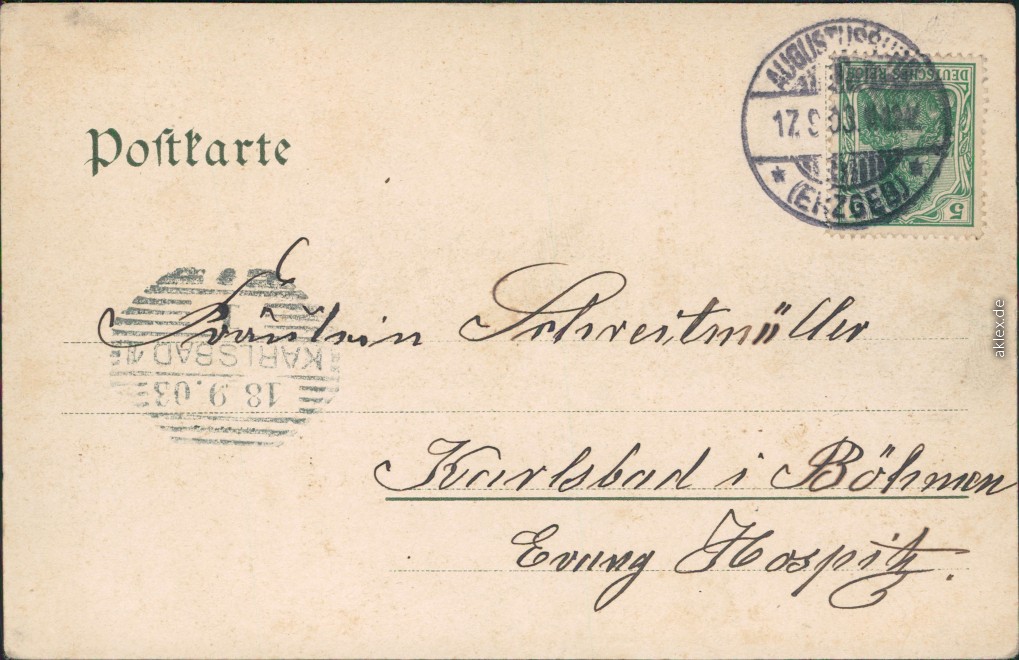 Postkarte
AUGUSTUSBURG
17.9.03.
(ERZGEB)
DEUTSCHES REICH
5
Fräulein Schreitmüller
KARLSBAD 1
18.9.03
Karlsbad i Böhmen
Evang Hospitz.
aklex.de